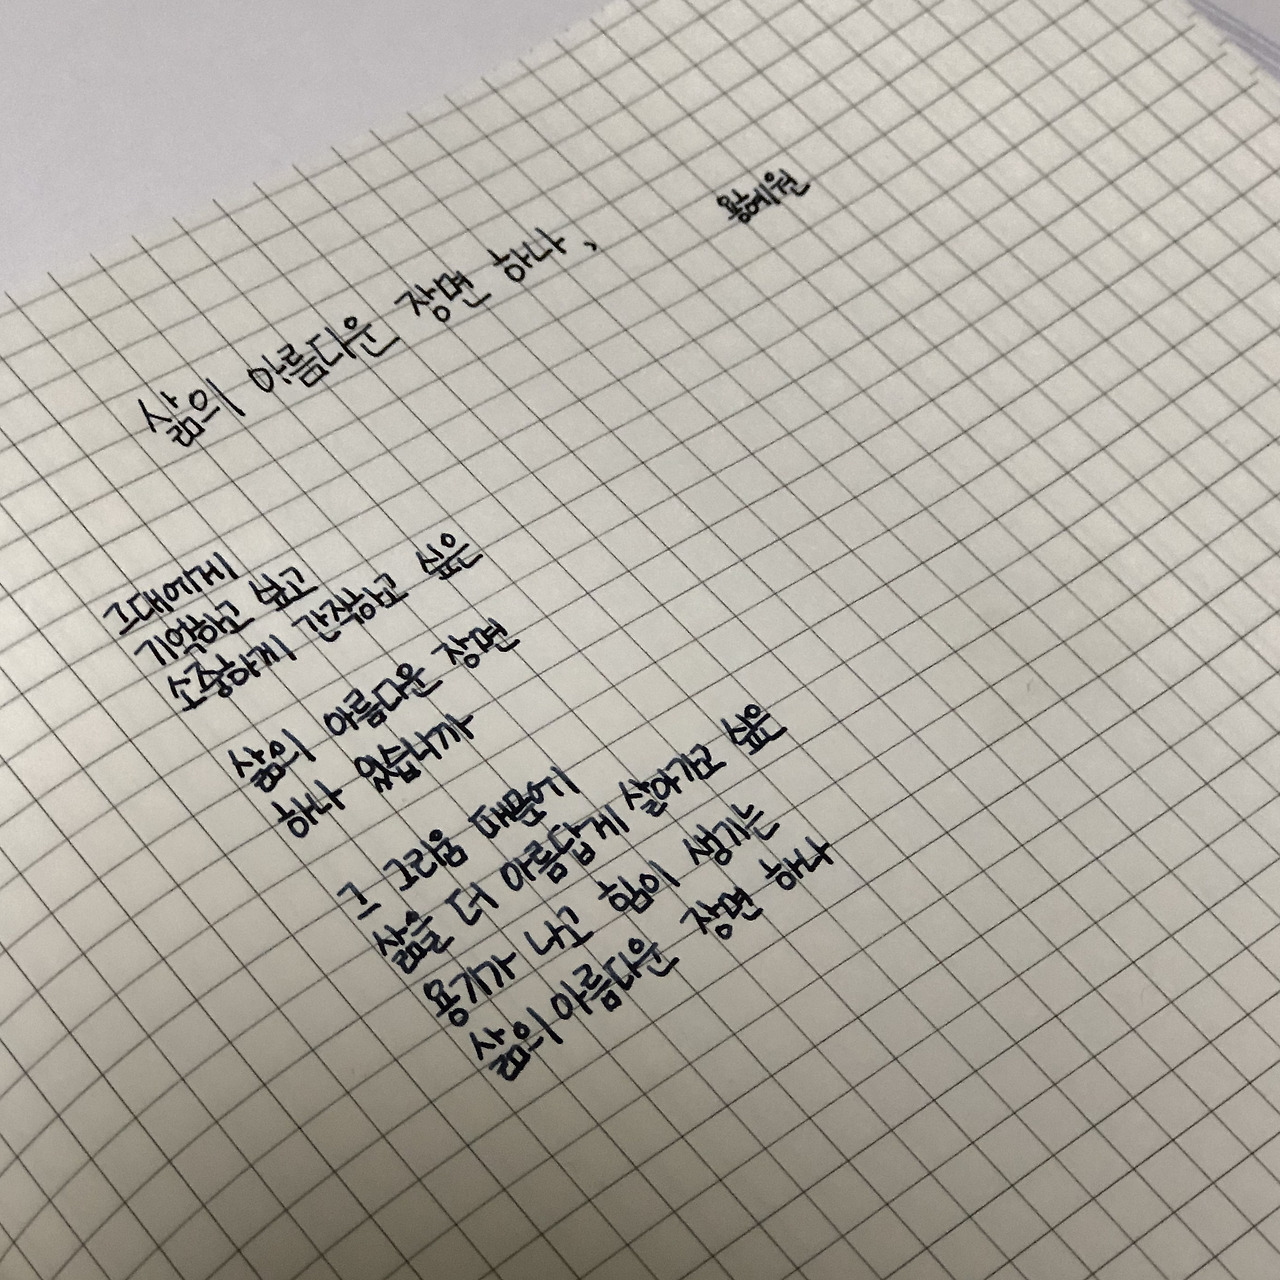 삶의 아름다운 장면 하나,
용혜원
그대에게
기억하고 싶고
소중하게 간직하고 싶은
삶의 아름다운 장면
하나 있습니까
그 그리움 때문에
삶을 더 아름답게 살아가고 싶은
용기가 나고 힘이 생기는
삶의 아름다운 장면 하나